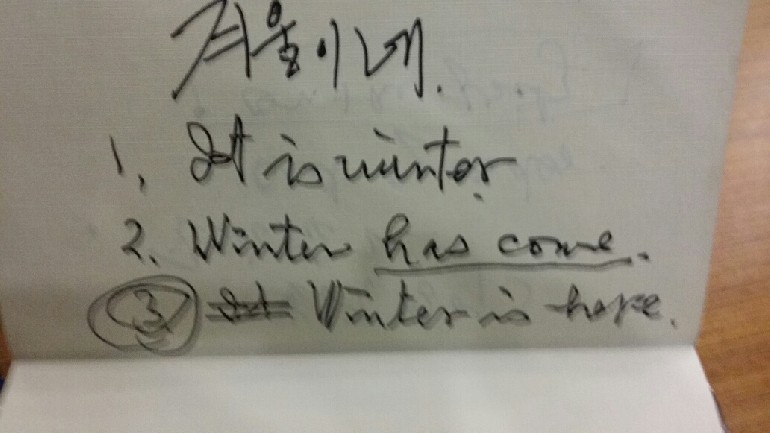 겨울이네.
1. It is winter
2. Winter has come.
3 It Winter is here.